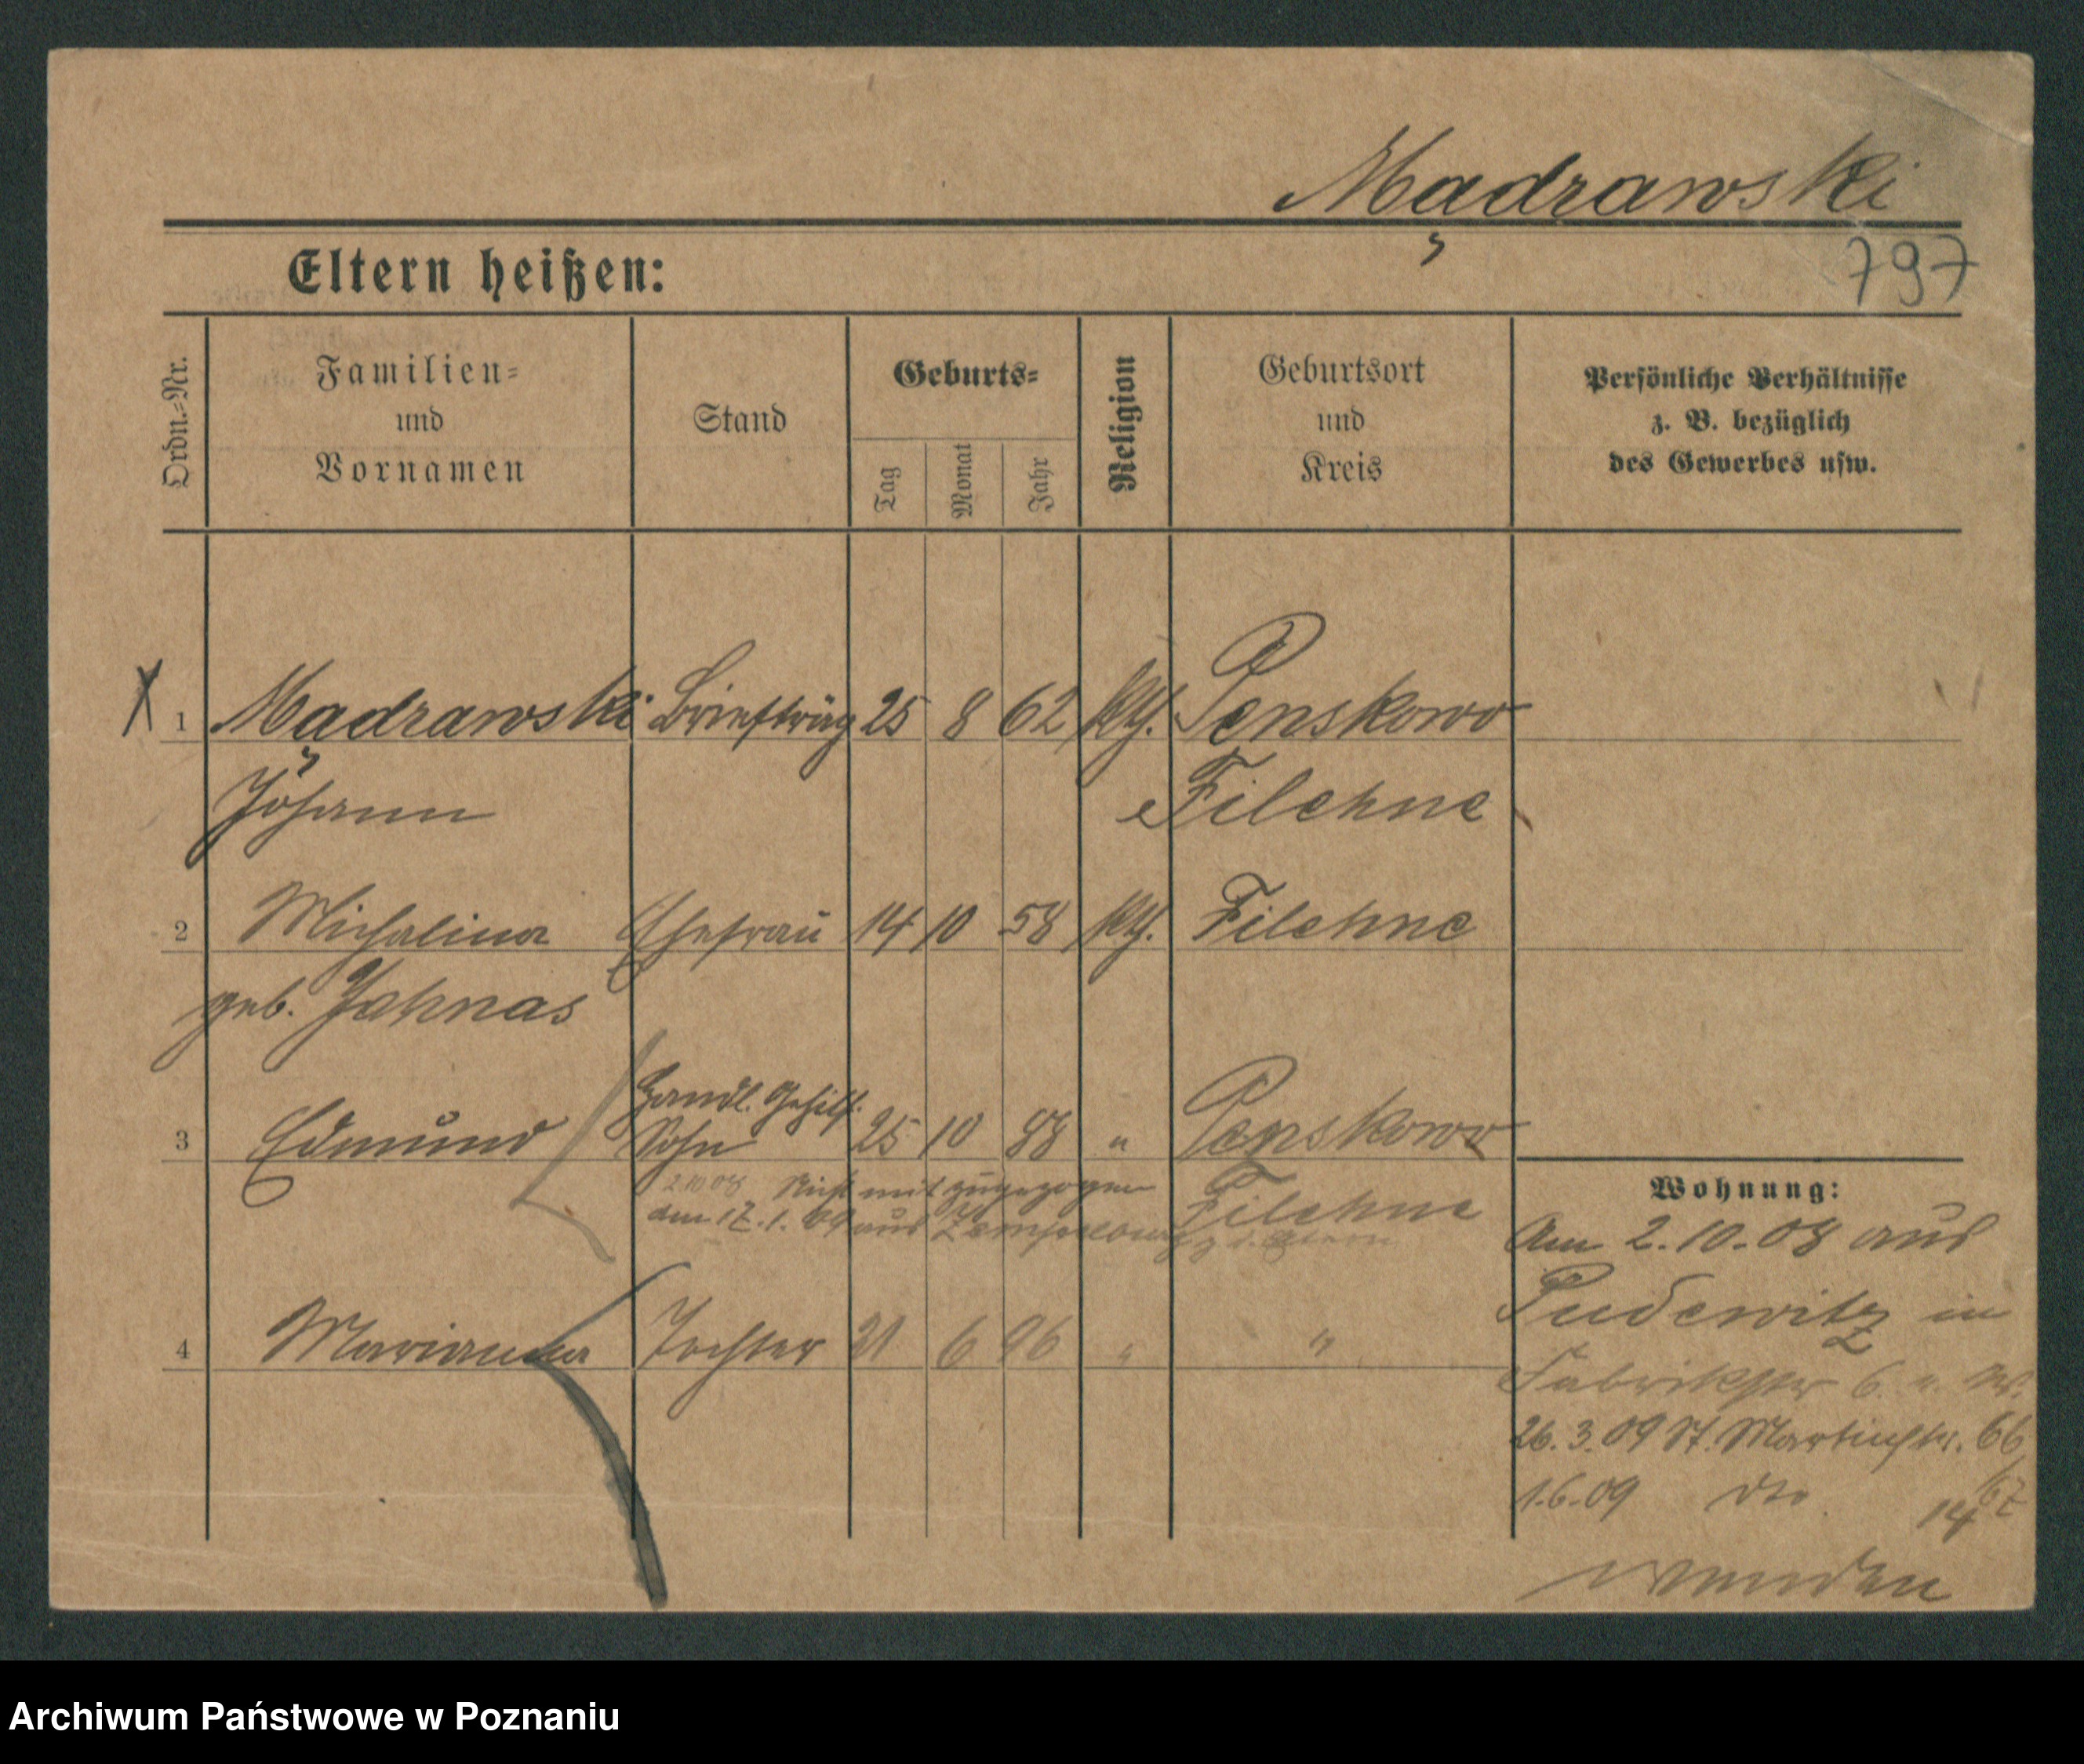 Mądrawski
797
Eltern heißen:
Ordn.-Nr.
Familien-
und
Vornamen
Stand
Geburts-
Tag
Monat
Jahr
Religion
Geburtsort
und
Kreis
Persönliche Verhältnisse
z. B. bezüglich
des Gewerbes usw.
X 1 Mądrawski Briefträg 25 8 62 kth. Penskowo
Johann Filehne
2 Michalina Ehefrau 14 10 58 kth. Filehne
geb. Jahnas
Handl. Gehilf.
3 Edmund Sohn 25 10 88 " Penskowo
2.10.08 Nicht mit zugezogen Filehne
am 17.1.09 aus
4 Marianna Tochter 21 6 96 " "
Wohnung:
Am 2.10.08 aus
Pudewitz in
Fabrikstr 6
26.3.09 St. Martinstr. 66
/67
1.6.09 dto 14
wenden
Archiwum Państwowe w Poznaniu